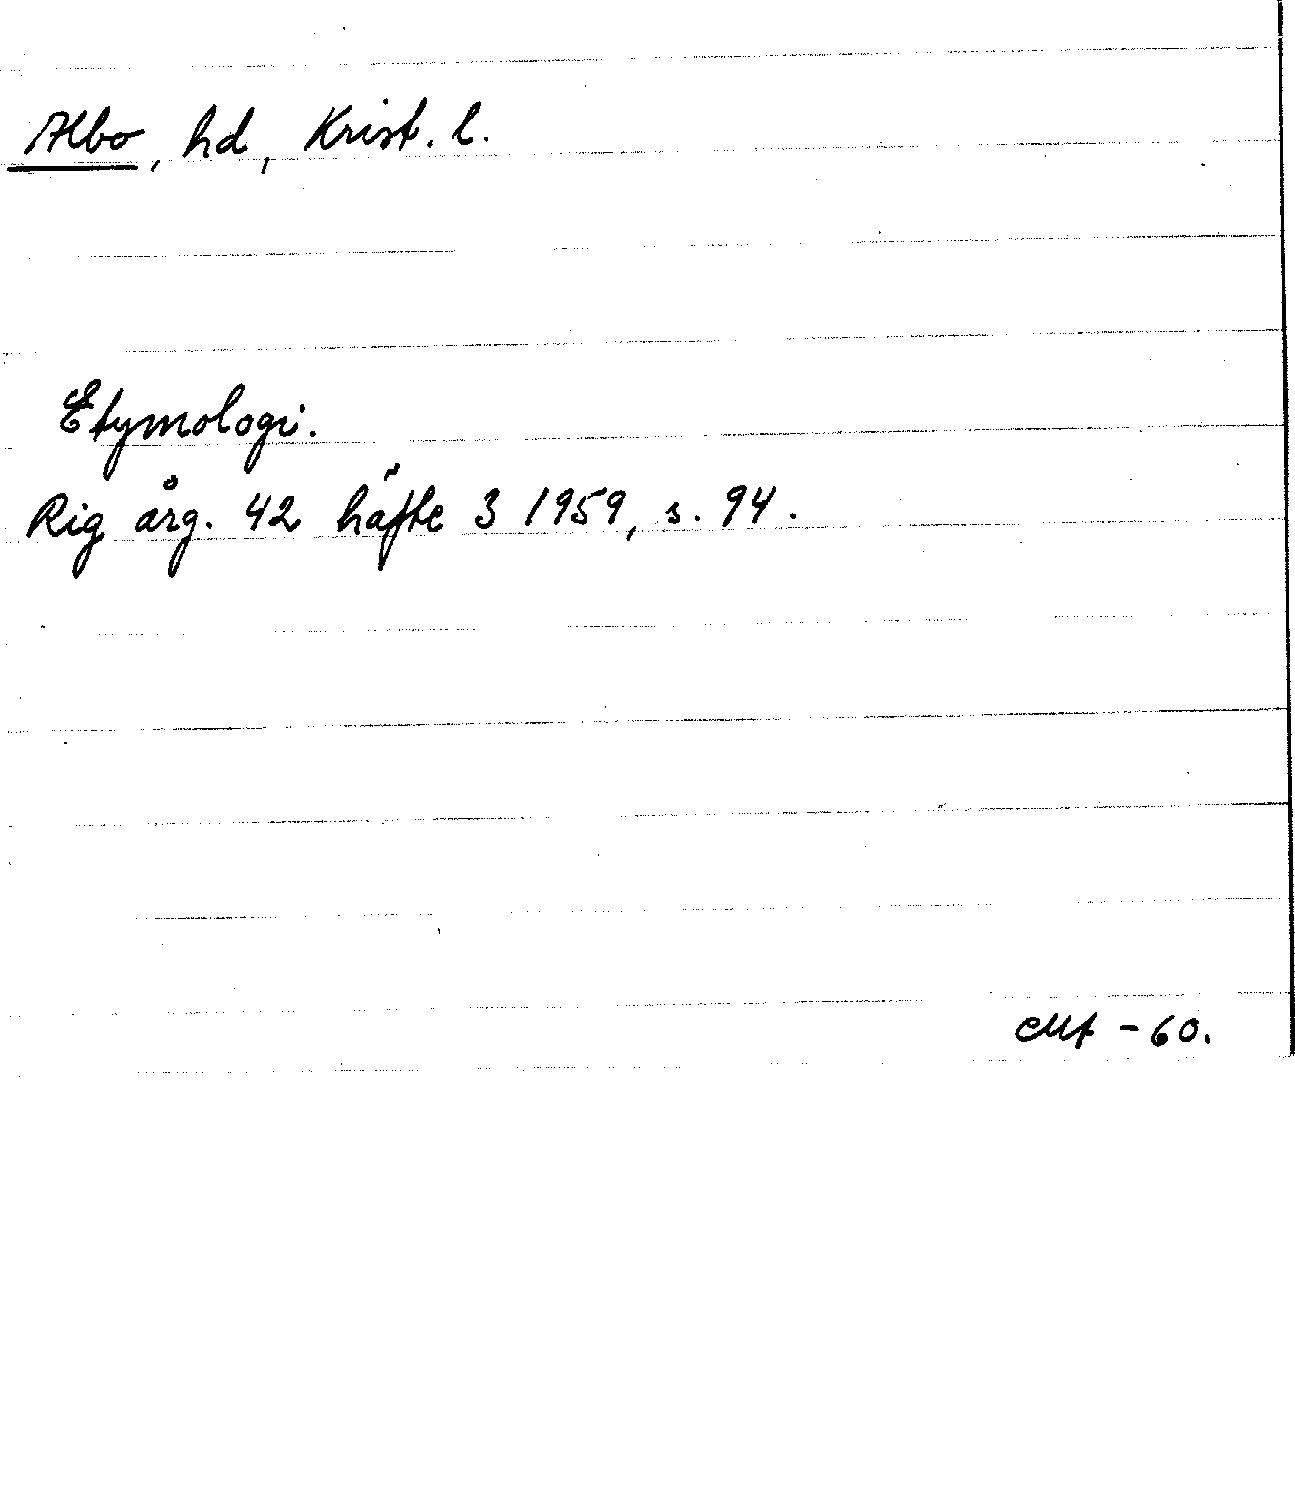 Albo, hd, Krist. l.
Etymologi.
Rig årg. 42 häfte 3 1959, s. 94.
-60.